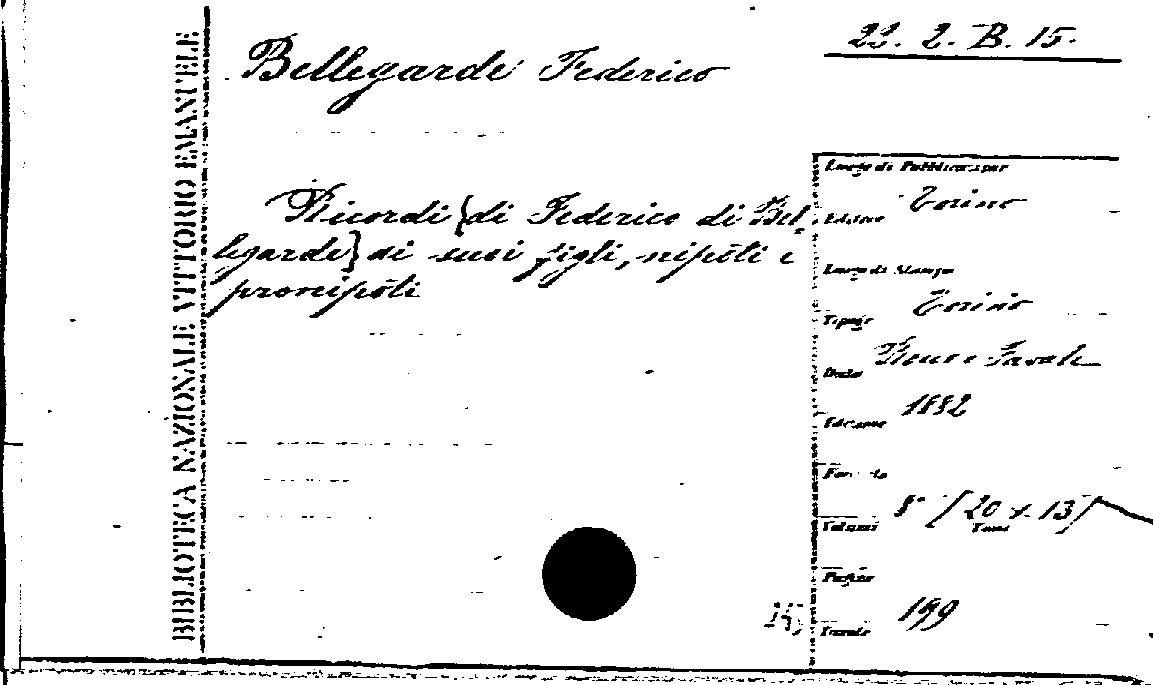 22. 2. B. 15.
BIBLIOTECA NAZIONALE VITTORIO EMANUELE
Bellegarde Federico
Ricordi {di Federico di Bel-
legarde} ai suoi figli, nipoti e
pronipoti
Luogo di Pubblicazione
Torino
Editore
Luogo di Stampa
Torino
Tipogr.
Roux e Favale
Data
1882
Edizione
Formato
8° [20 x 13]
Volumi
Tomi
Pagine
199
Tavole